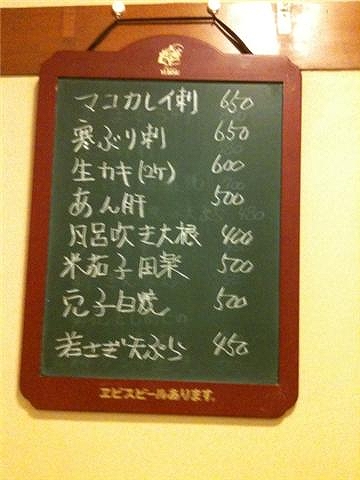 マコカレイ刺 650
寒ぶり刺 650
生カキ(2ケ) 600
あん肝 500
風呂吹き大根 400
米茄子田楽 500
穴子白焼 500
若さぎ天ぷら 450
ヱビスビールあります。